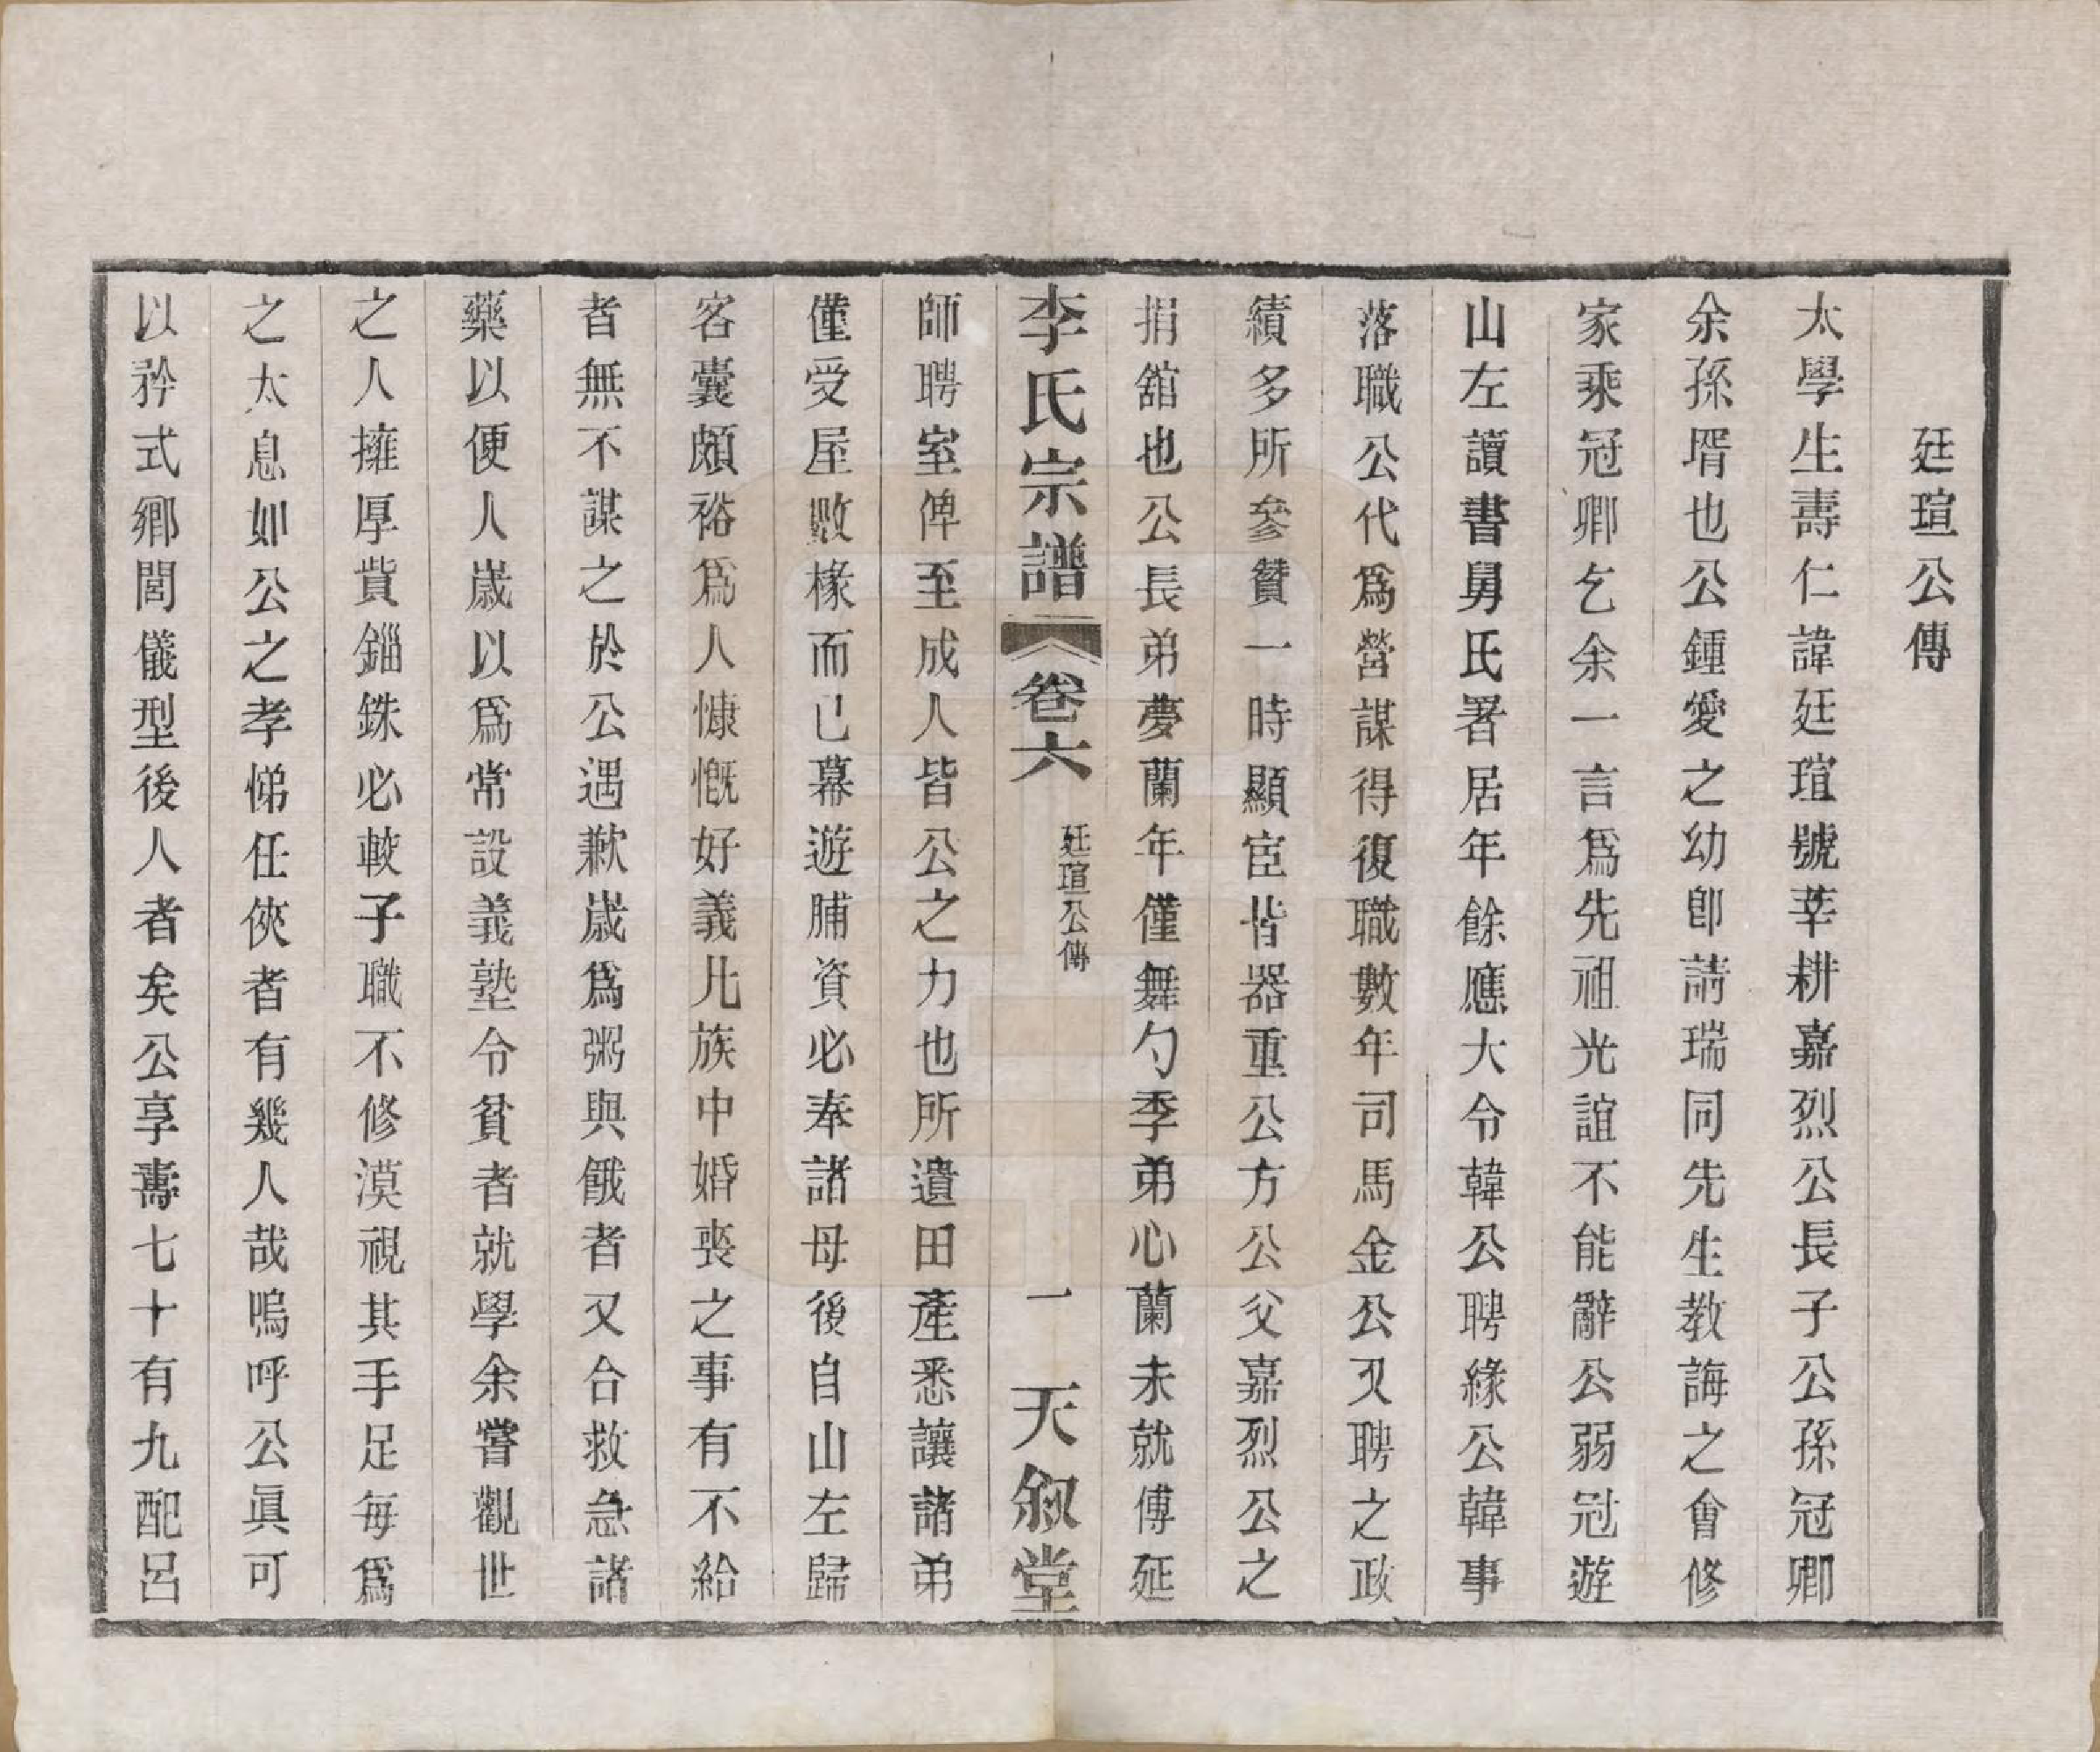 廷瑄公傳
太學生壽仁諱廷瑄號莘耕嘉烈公長子公孫冠卿
余孫壻也公鍾愛之幼卽請瑞同先生教誨之會修
家乘冠卿乞余一言爲先祖光誼不能辭公弱冠遊
山左讀書舅氏署居年餘應大令韓公聘緣公韓事
落職公代爲營謀得復職數年司馬金公又聘之政
績多所參贊一時顯宦皆器重公方公父嘉烈公之
捐舘也公長弟夢蘭年僅舞勺季弟心蘭未就傅延
李氏宗譜
卷六
廷瑄公傳
一
天叙堂
師聘室俾至成人皆公之力也所遺田產悉讓諸弟
僅受屋數椽而已幕遊脯資必奉諸母後自山左歸
客囊頗裕爲人慷慨好義凡族中婚喪之事有不給
者無不謀之於公遇歉歲爲粥與餓者又合救急諸
藥以便人歲以爲常設義塾令貧者就學余嘗觀世
之人擁厚貲錙銖必較子職不修漠視其手足每爲
之太息如公之孝悌任俠者有幾人哉嗚呼公眞可
以矜式鄉閭儀型後人者矣公享壽七十有九配呂